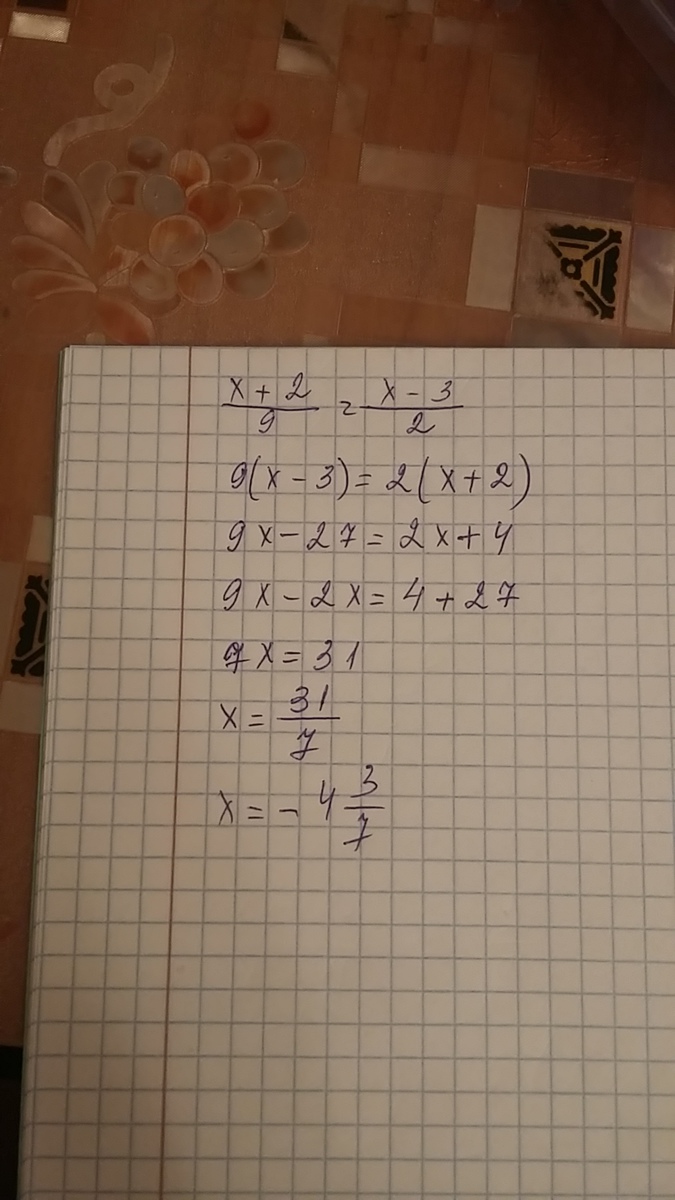 x + 2 / 9 = x - 3 / 2
9(x - 3) = 2(x + 2)
9x - 27 = 2x + 4
9x - 2x = 4 + 27
7x = 31
x = 31 / 7
x = - 4 3/7